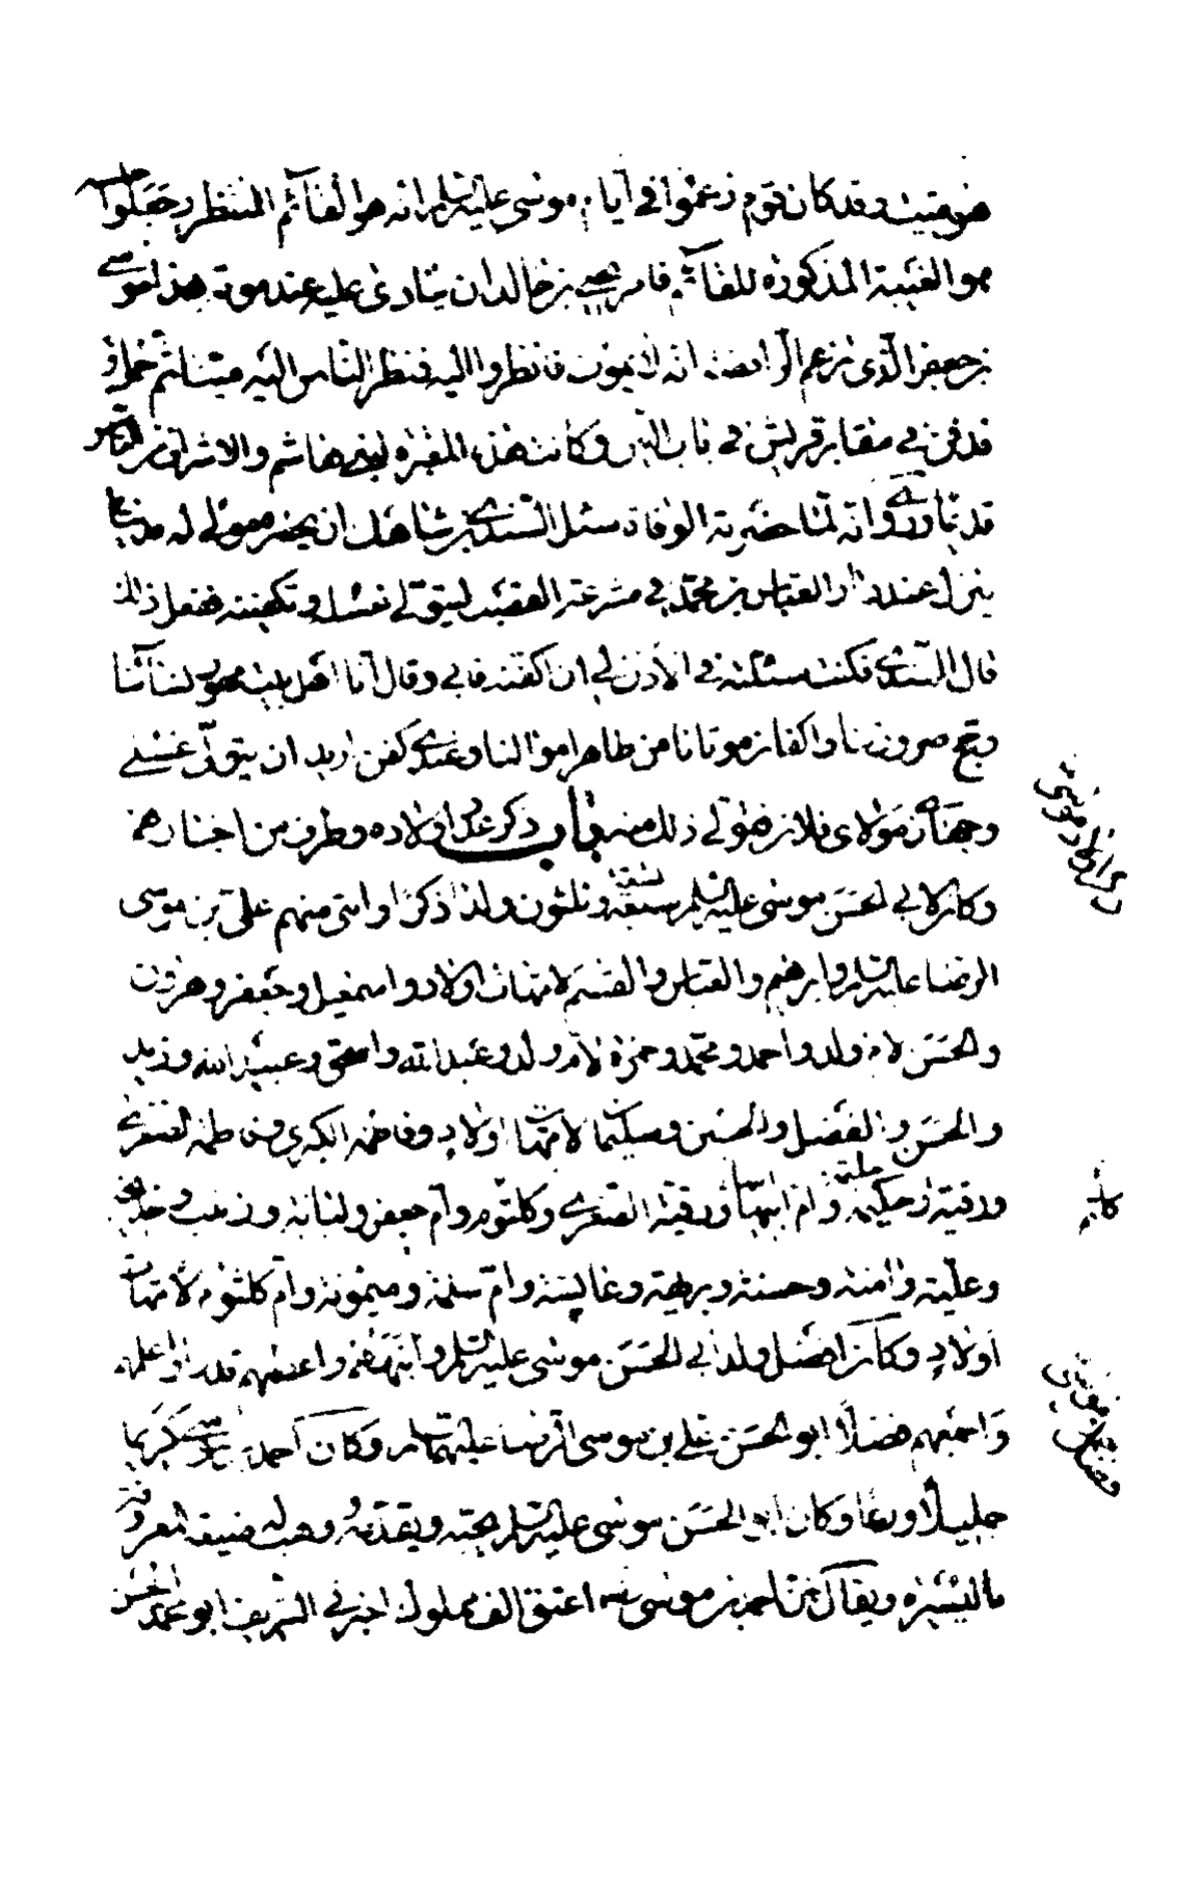 هو ميت وقد كان قوم زعموا في ايام موسى عليه السلم انه هو القآئم المنتظر وجعلوا حبسه
هو الغيبة المذكورة للقآئم فامر يحيى بن خالد ان ينادى عليه عند موته هذا موسى
بن جعفر الذى يزعم الرافضة انه لا يموت فانظروا اليه فنظر الناس اليه ميتا ثم حمل و
فدفن في مقابر قريش في باب التين وكانت هذه المقبرة لبني هاشم والاشراف من الناس
قديما وروى انه لما حضرته الوفاة سئل السندي بن شاهك ان يحضر مولى له مدنيا
ينزل عند دار العباس بن محمد في مشرعة القصب ليتولى غسله وتكفينه ففعل ذلك
قال السندي فكنت سئلته في الاذن لي ان اكفنه فابى وقال انا اهل بيت مهور نسآئنا
وحج صرورتنا واكفان موتانا من طاهر اموالنا وعندي كفن اريد ان يتولى غسلي
وجهازي مولاى فلان فتولى ذلك منه باب ذكر عدد اولاده وطرف من اخبارهم
وكان لابي الحسن موسى عليه السلم سبعة وثلثون ولدا ذكرا وانثى منهم على بن موسى
الرضا عليه السلم وابرهيم والعباس والقسم لامهات اولاد واسمعيل وجعفر وهرون
والحسن لام ولد واحمد ومحمد وحمزة لام ولد وعبد الله واسحق وعبيد الله وزيد
والحسن والفضل والحسين وسليمان لامهات اولاد وفاطمة الكبرى وفاطمة الصغرى
ورقية وحكيمة وام ابيها ورقية الصغرى وكلثوم وام جعفر ولبابة وزينب وخديجة
وعلية وآمنة وحسنة وبريهة وعايشة وام سلمة وميمونة وام كلثوم لامهات
اولاد وكان افضل ولد ابي الحسن موسى عليه السلم وانبههم واعظمهم قدرا واعلمهم
واجمعهم فضلا ابو الحسن علي بن موسى الرضا عليهما السلم وكان احمد بن موسى كريما
جليلا ورعا وكان ابو الحسن موسى عليه السلم يحبه ويقدمه ووهب له ضيعته المعروفة
باليسيرة ويقال ان احمد بن موسى رضه اعتق الف مملوك اخبرني الشريف ابو محمد الحسن
ذكر اولاد موسى
كاظم